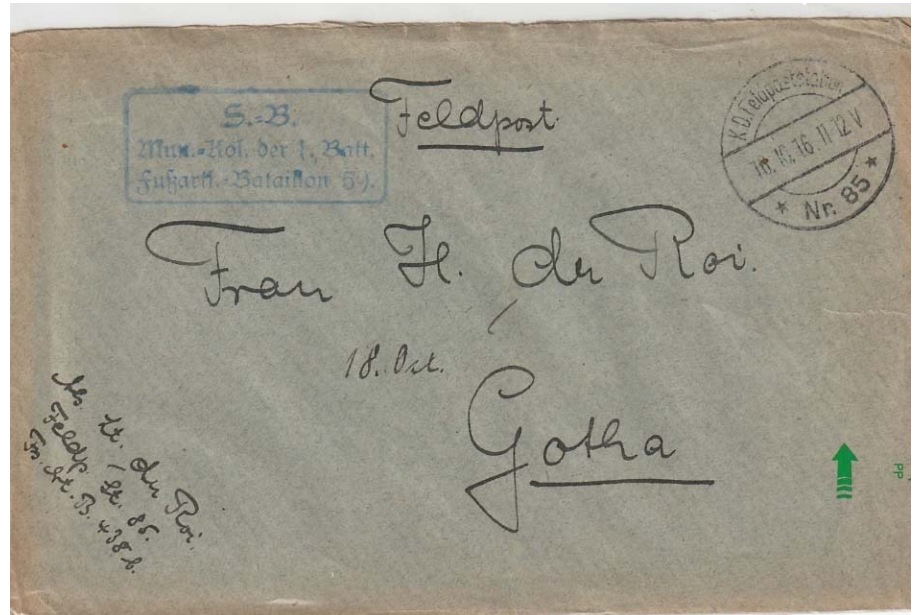 S.-B.
Mun.-Kol. der 1. Batt.
Fußartl.-Bataillon
Feldpost
K.D.Feldpoststation
18.10.16.11-12V
* Nr. 85 *
Frau H. du Roi.
18. Oct.
Gotha
Abs. Lt. du Roi.
Feldp. St. 85.
PP